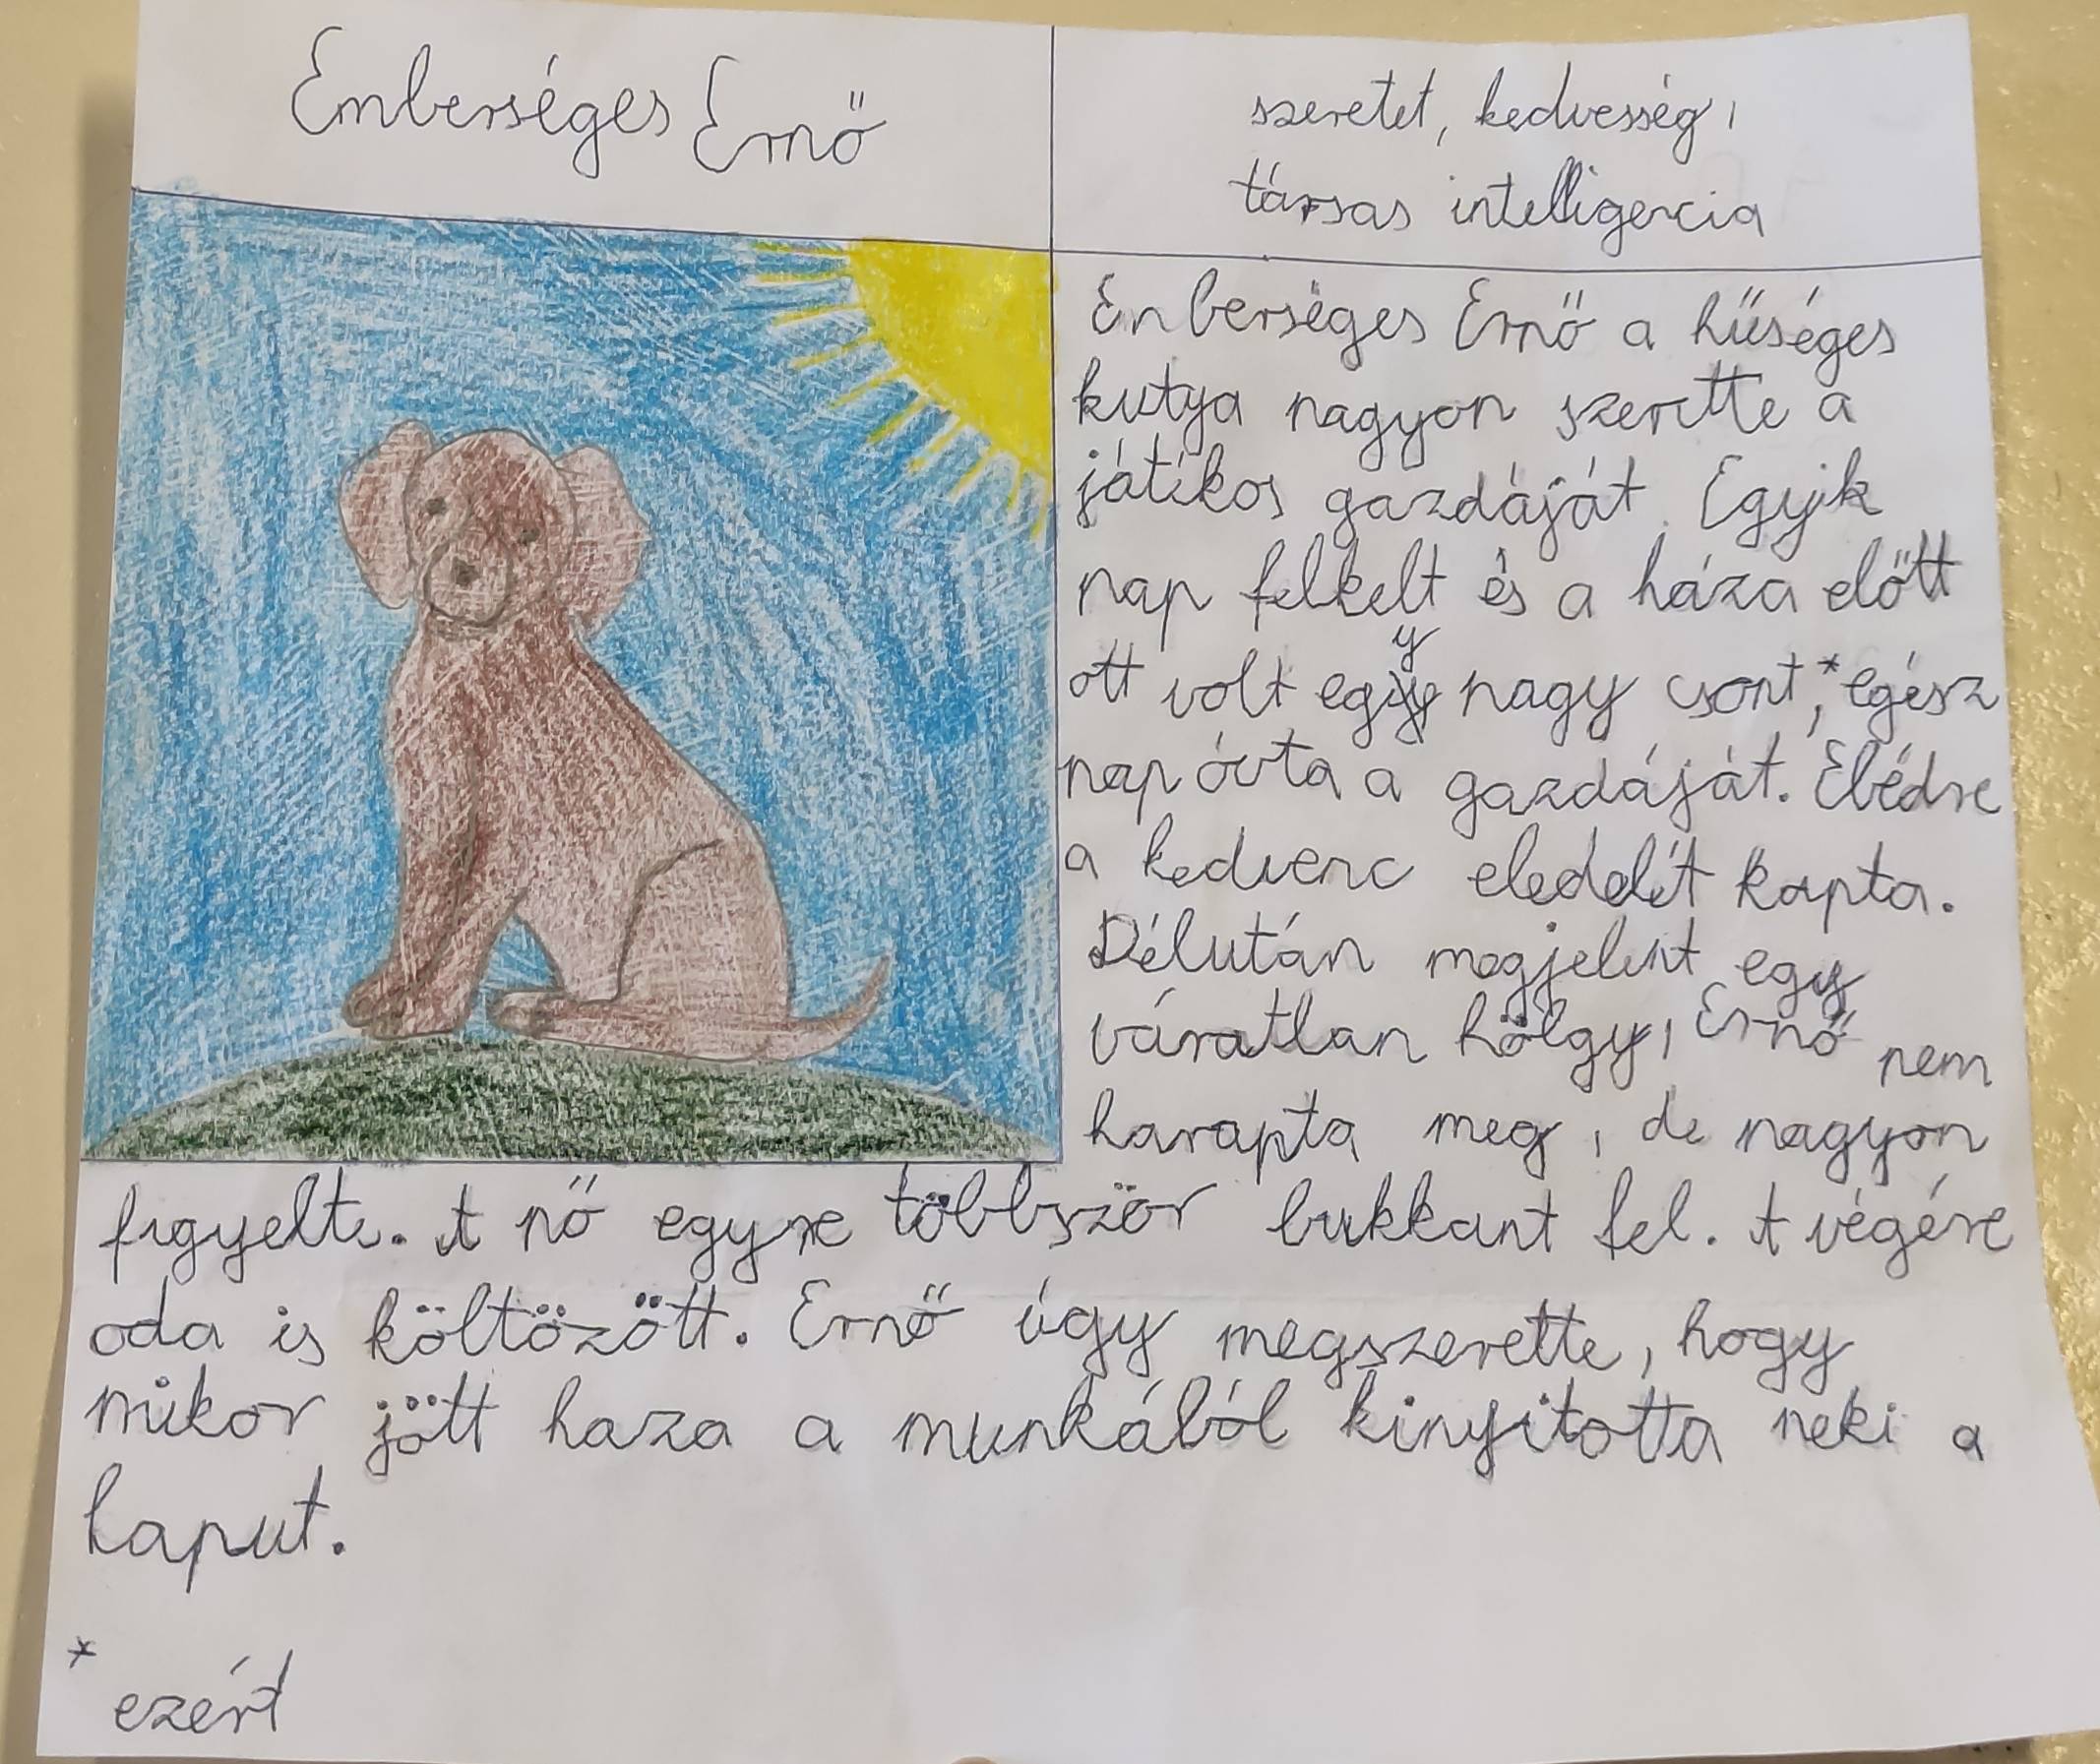 Emberséges Ernő
szeretet, kedvesség,
társas intelligencia
Emberséges Ernő a hűséges
kutya nagyon szerette a
játékos gazdáját. Egyik
nap felkelt és a háza előtt
ott volt egy nagy csont,* egész
nap óvta a gazdáját. Ebédre
a kedvenc eledelét kapta.
Délután megjelent egy
váratlan hölgy, Ernő nem
harapta meg, de nagyon
figyelte. A nő egyre többször bukkant fel. A végére
oda is költözött. Ernő úgy megszerette, hogy
mikor jött haza a munkából kinyitotta neki a
kaput.
* ezért